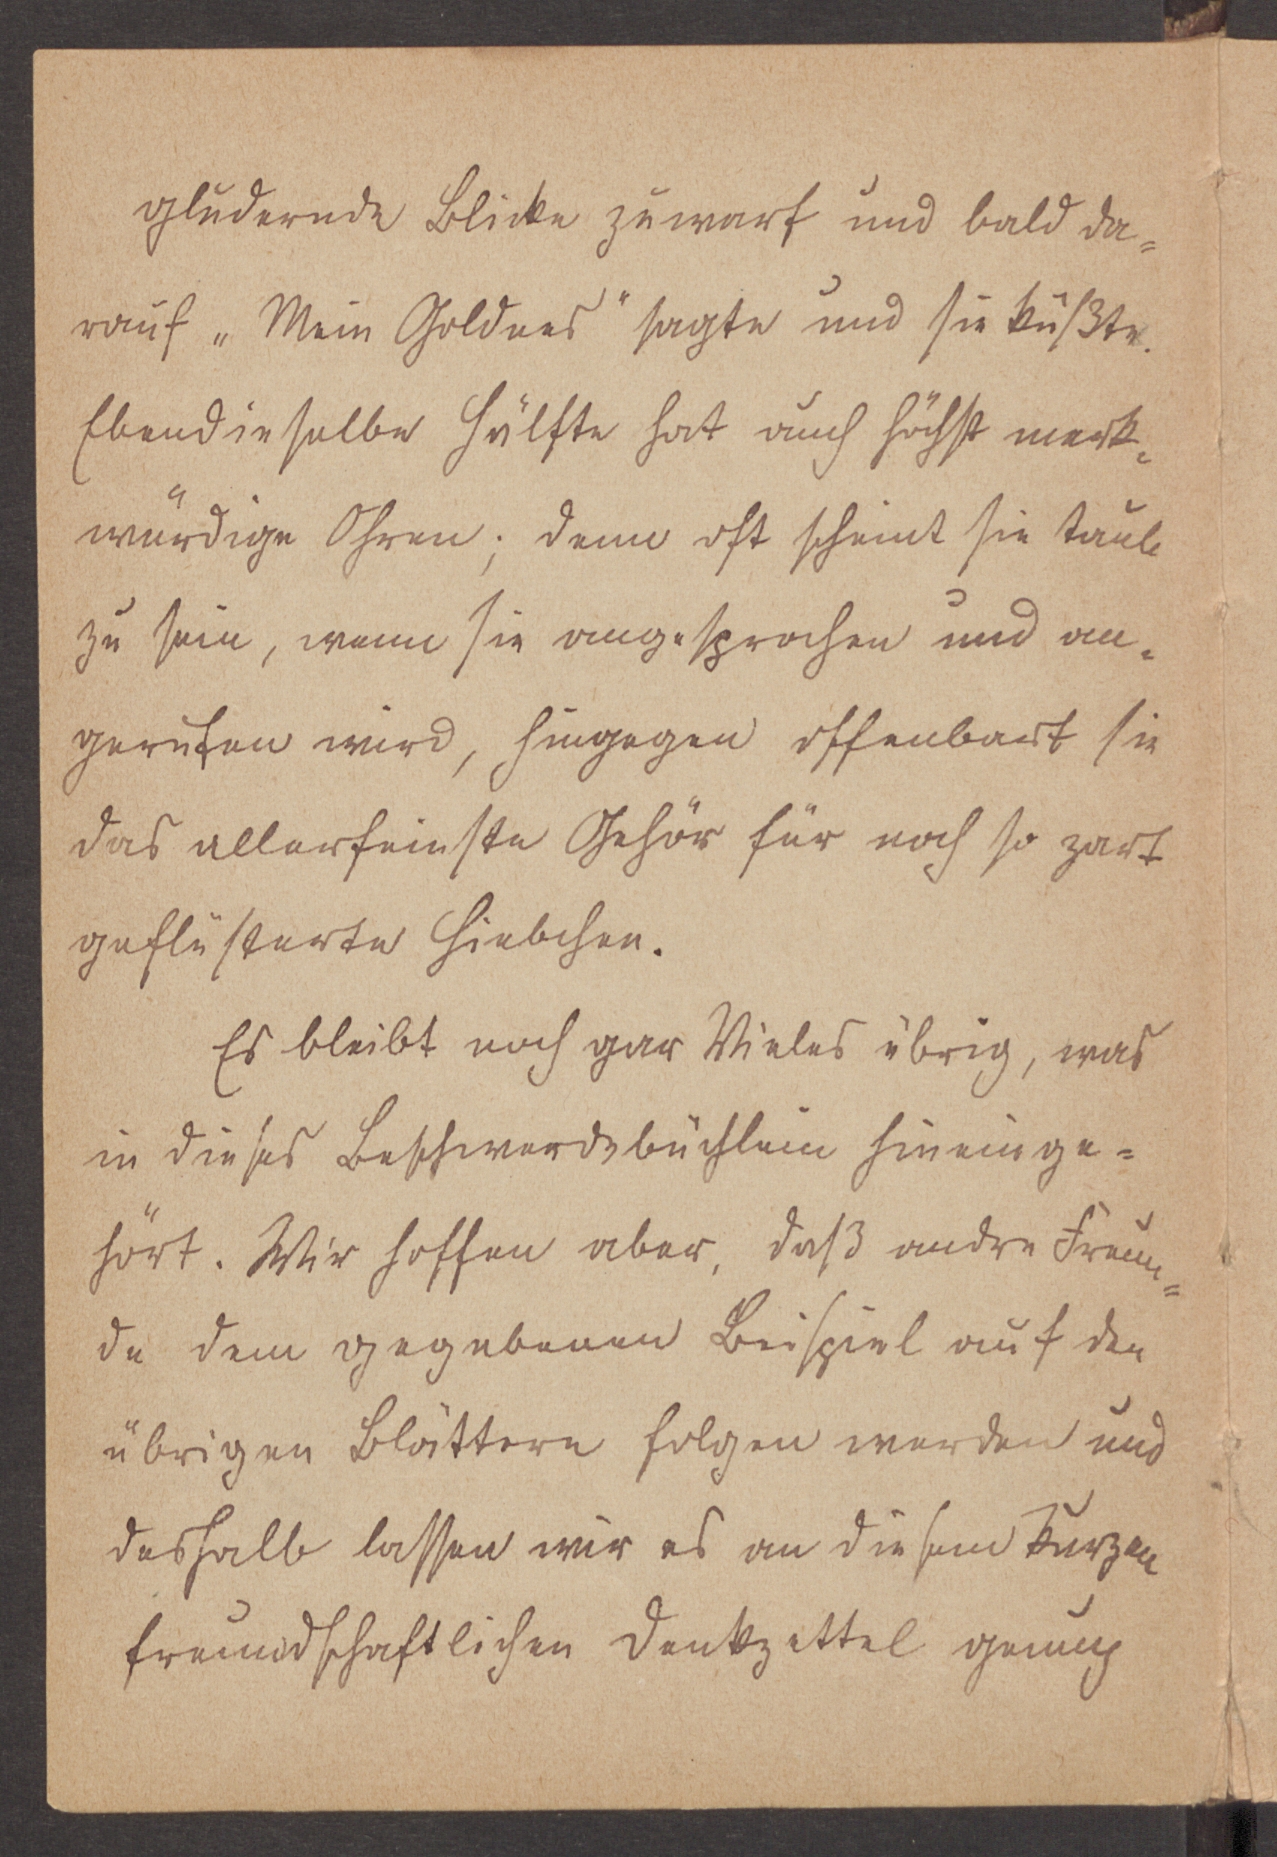 gludernde Blicke zuwarf und bald da=
rauf „Mein Goldnes" sagte und sie küßte.
Ebendieselbe Hälfte hat auch höchst merk=
würdige Ohren; denn oft scheint sie taub
zu sein, wenn sie angesprochen und an=
gerufen wird, hingegen offenbart sie
das allerfeinste Gehör für noch so zart
geflüsterte Hiebchen.
Es bleibt noch gar Vieles übrig, was
in dieses Beschwerdebüchlein hineinge=
hört. Wir hoffen aber, daß andre Freun=
de dem gegebenen Beispiel auf den
übrigen Blättern folgen werden und
deshalb lassen wir es an diesem kurzen
freundschaftlichen Denkzettel genug